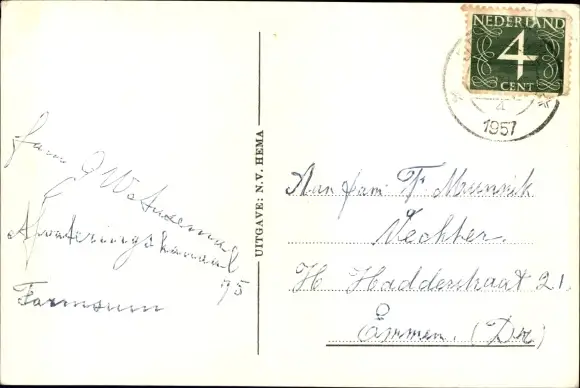 NEDERLAND
4
CENT
1957
UITGAVE: N.V. HEMA
fam
Afwateringskanaal
75
Farmsum
Aan fam: F. Meunnik
Vechter.
H Hadderstraat 21.
Emmen. (Dr)